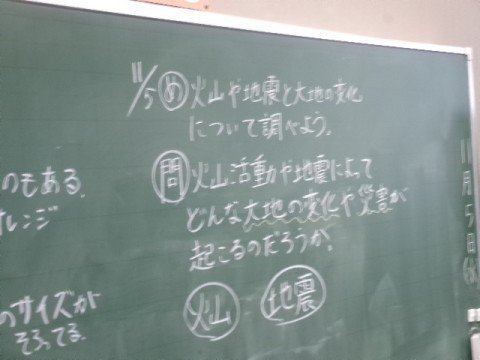 11/5 め 火山や地震と大地の変化
について調べよう。
問 火山活動や地震によって
どんな大地の変化や災害が
起こるのだろうか。
火山 地震
のもある。
オレンジ
のサイズが
そろってる。
11月5日(水)